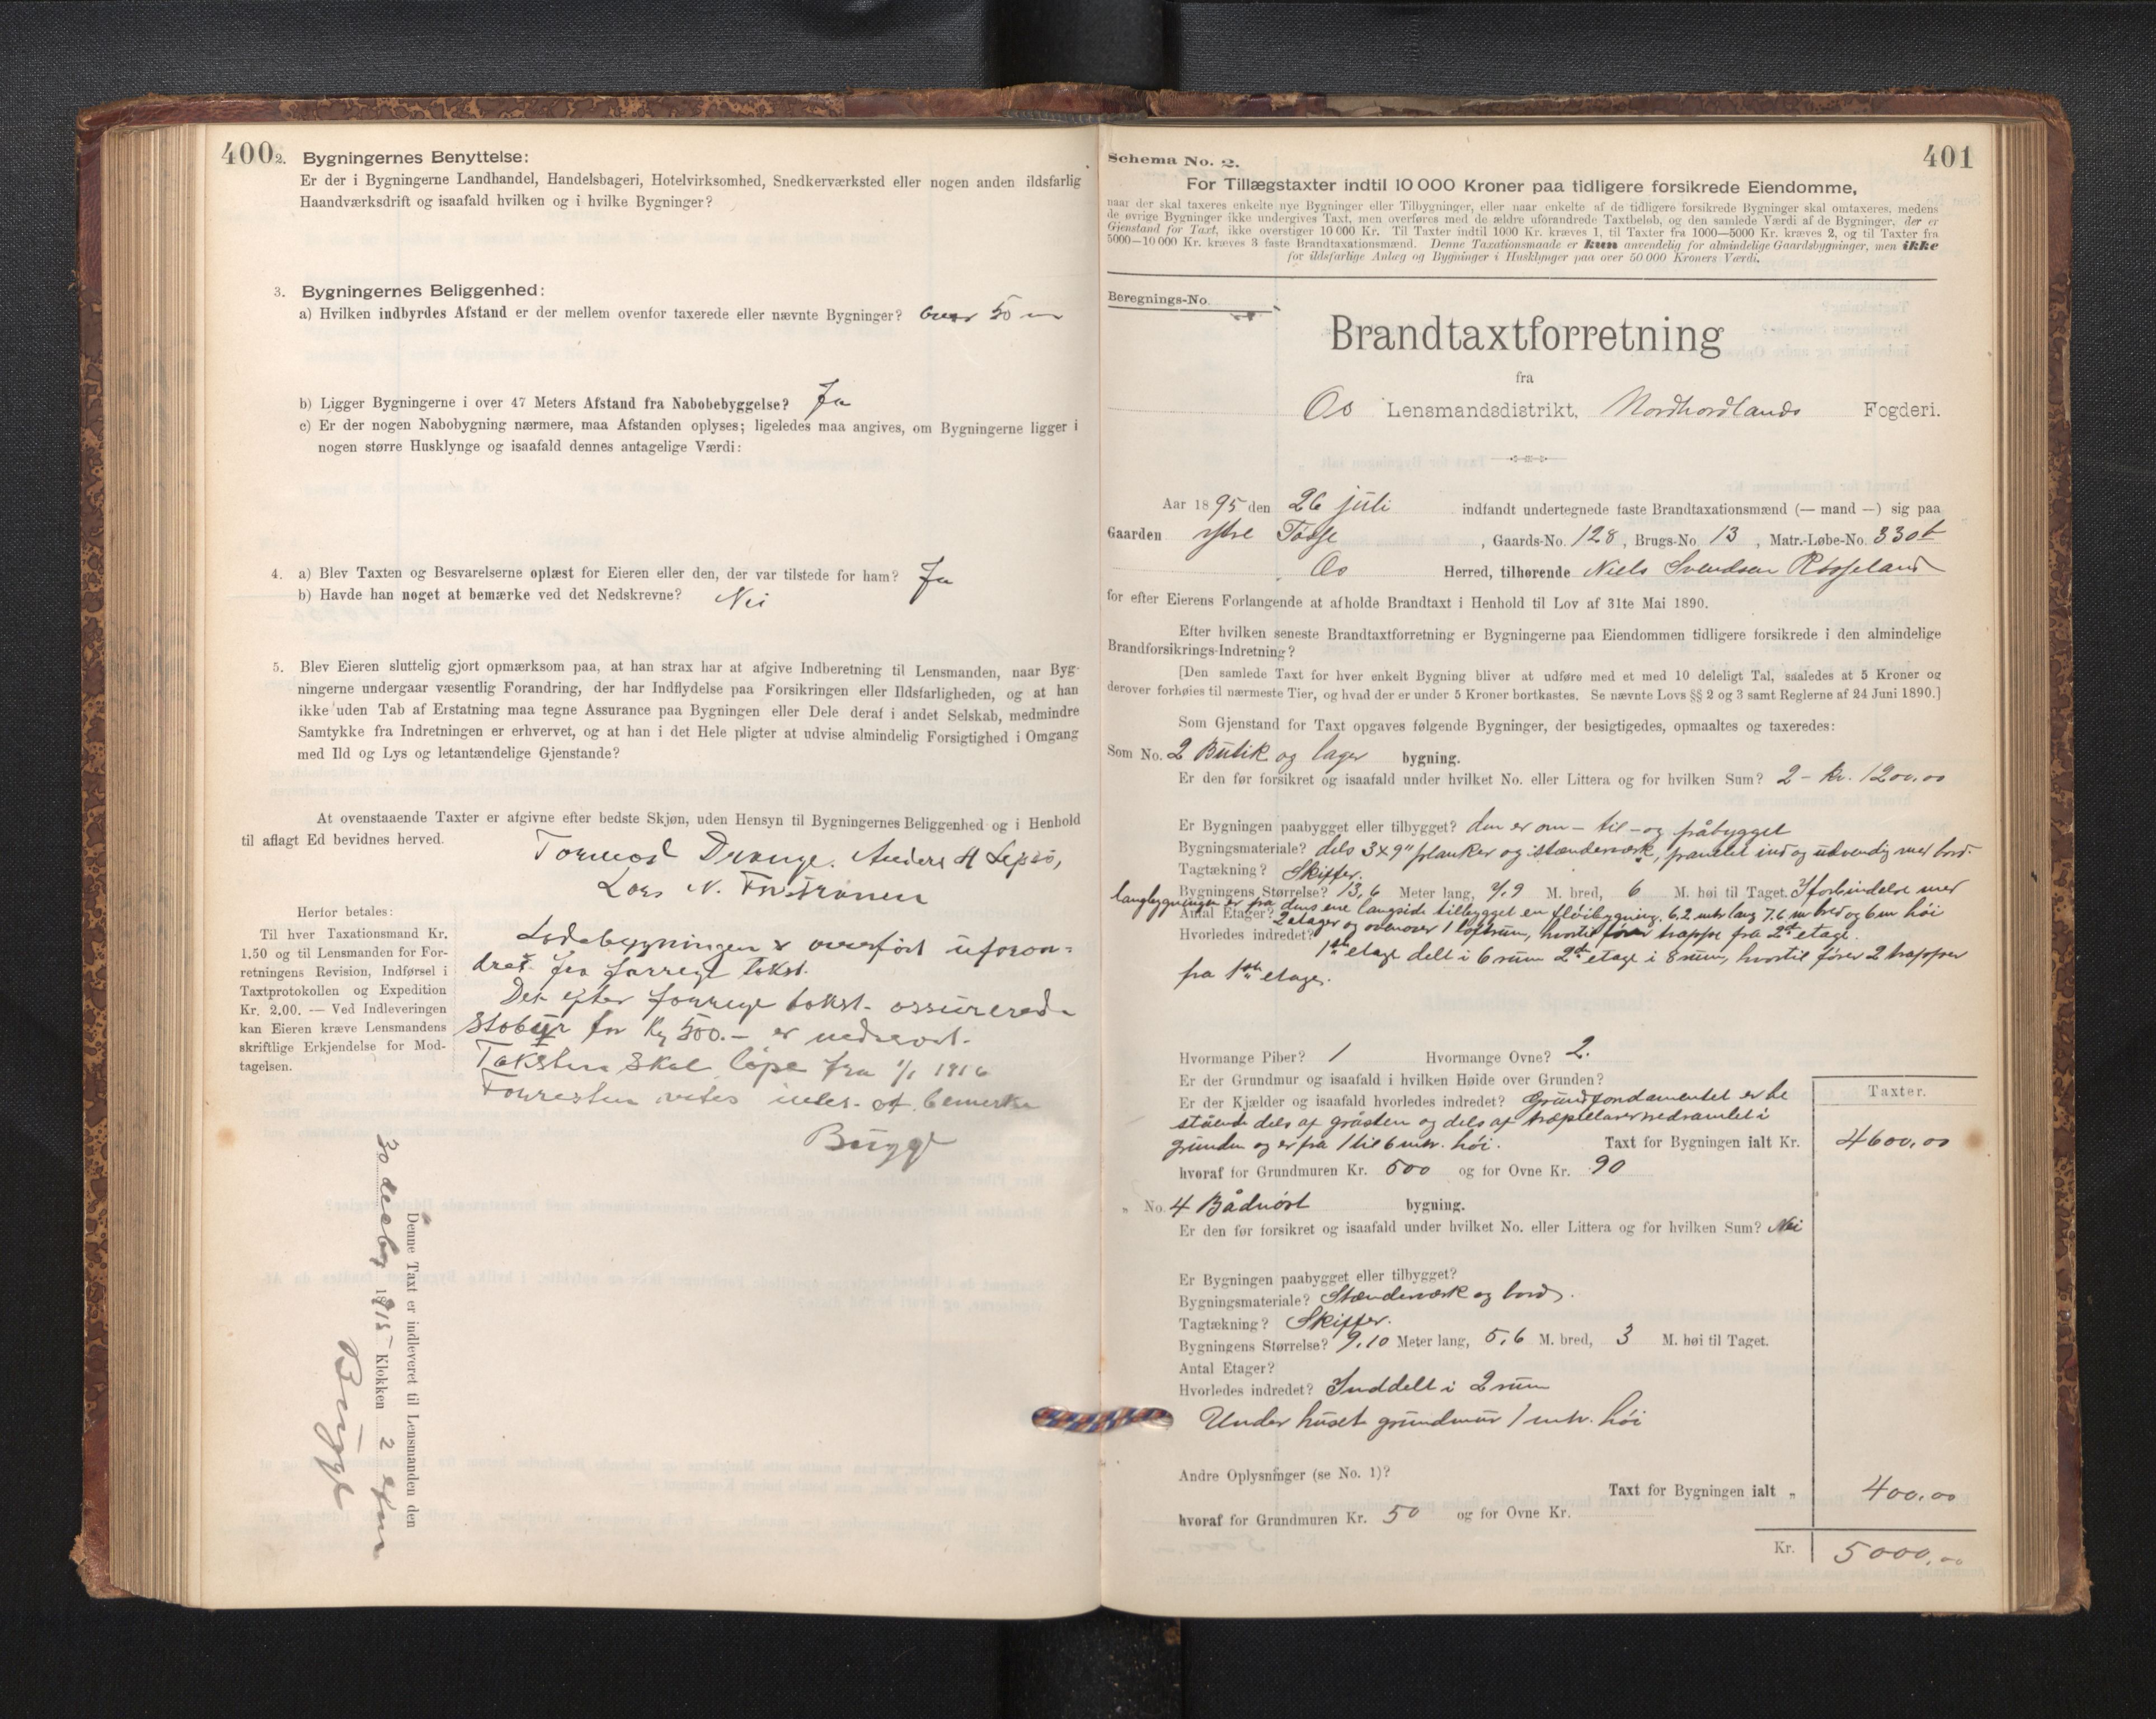 400
2. Bygningernes Benyttelse:
Er der i Bygningerne Landhandel, Handelsbageri, Hotelvirksomhed, Snedkerværksted eller nogen anden ildsfarlig
Haandværksdrift og isaafald hvilken og i hvilke Bygninger?
3. Bygningernes Beliggenhed:
a) Hvilken indbyrdes Afstand er der mellem ovenfor taxerede eller nævnte Bygninger? over 50 m
b) Ligger Bygningerne i over 47 Meters Afstand fra Nabobebyggelse? Ja
c) Er der nogen Nabobygning nærmere, maa Afstanden oplyses; ligeledes maa angives, om Bygningerne ligger i
nogen større Husklynge og isaafald dennes antagelige Værdi:
4. a) Blev Taxten og Besvarelserne oplæst for Eieren eller den, der var tilstede for ham? Ja
b) Havde han noget at bemærke ved det Nedskrevne? Nei
5. Blev Eieren sluttelig gjort opmærksom paa, at han strax har at afgive Indberetning til Lensmanden, naar Byg-
ningerne undergaar væsentlig Forandring, der har Indflydelse paa Forsikringen eller Ildsfarligheden, og at han
ikke uden Tab af Erstatning maa tegne Assurance paa Bygningen eller Dele deraf i andet Selskab, medmindre
Samtykke fra Indretningen er erhvervet, og at han i det Hele pligter at udvise almindelig Forsigtighed i Omgang
med Ild og Lys og letantændelige Gjenstande?
At ovenstaaende Taxter er afgivne efter bedste Skjøn, uden Hensyn til Bygningernes Beliggenhed og i Henhold
til aflagt Ed bevidnes herved.
Tormod Drange. Anders H Lepsø,
Lars N.
Herfor betales:
Til hver Taxationsmand Kr.
1.50 og til Lensmanden for For-
retningens Revision, Indførsel i
Taxtprotokollen og Expedition
Kr. 2.00. — Ved Indleveringen
kan Eieren kræve Lensmandens
skriftlige Erkjendelse for Mod-
tagelsen.
Ladebygningen er overført uforan-
dret fra forrige takst.
Det efter forrige takst assurerede
Stabur for Kr 500.- er nedrevet.
Taksten skal løpe fra 1/1 1916
Forresten vides intet at bemerke
Bugge
Denne Taxt er indleveret til Lensmanden den
30 decbr 1915 Klokken 2 efm
Bugge
401
Schema No. 2.
For Tillægstaxter indtil 10 000 Kroner paa tidligere forsikrede Eiendomme,
naar der skal taxeres enkelte nye Bygninger eller Tilbygninger, eller naar enkelte af de tidligere forsikrede Bygninger skal omtaxeres, medens
de øvrige Bygninger ikke undergives Taxt, men overføres med de ældre uforandrede Taxtbeløb, og den samlede Værdi af de Bygninger, der er
Gjenstand for Taxt, ikke overstiger 10 000 Kr. Til Taxter indtil 1000 Kr. kræves 1, til Taxter fra 1000—5000 Kr. kræves 2, og til Taxter fra
5000—10 000 Kr. kræves 3 faste Brandtaxationsmænd. Denne Taxationsmaade er kun anvendelig for almindelige Gaardsbygninger, men ikke
for ildsfarlige Anlæg og Bygninger i Husklynger paa over 50 000 Kroners Værdi.
Beregnings-No.
Brandtaxtforretning
fra
Os Lensmandsdistrikt, Nordhordlands Fogderi.
Aar 1895 den 26 juli indfandt undertegnede faste Brandtaxationsmænd (— mand —) sig paa
Gaarden ystre Tøsse, Gaards-No. 128, Brugs-No. 13, Matr.-Løbe-No. 330b
Os Herred, tilhørende Niels Svendsen Røsseland
for efter Eierens Forlangende at afholde Brandtaxt i Henhold til Lov af 31te Mai 1890.
Efter hvilken seneste Brandtaxtforretning er Bygningerne paa Eiendommen tidligere forsikrede i den almindelige
Brandforsikrings-Indretning?
[Den samlede Taxt for hver enkelt Bygning bliver at udføre med et med 10 deleligt Tal, saaledes at 5 Kroner og
derover forhøies til nærmeste Tier, og hvad der er under 5 Kroner bortkastes. Se nævnte Lovs §§ 2 og 3 samt Reglerne af 24 Juni 1890.]
Som Gjenstand for Taxt opgaves følgende Bygninger, der besigtigedes, opmaaltes og taxeredes:
Som No. 2 Butik og lager bygning.
Er den før forsikret og isaafald under hvilket No. eller Littera og for hvilken Sum? 2 - kr. 1200,00
Er Bygningen paabygget eller tilbygget? den er om- til- og påbygget
Bygningsmateriale? dels 3x9" planker og stænderværk, panelet ind og udvendig med bord.
Tagtækning? Skiffer.
Bygningens Størrelse? 13,6 Meter lang, 7,9 M. bred, 6 M. høi til Taget. I forbindelse med
langbygningen er fra dens ene langside tilbygget en fløibygning, 6.2 mtr lang 7.6 m bred og 6 m høi
Antal Etager? 2 etager og ovenover 1 loftsrum, hvortil fører trappe fra 2den etage.
Hvorledes indredet? 1ste etage delt i 6 rum 2den etage i 8 rum, hvortil fører 2 trapper
fra 1ste etage.
Hvormange Piber? 1 Hvormange Ovne? 2.
Er der Grundmur og isaafald i hvilken Høide over Grunden?
Er der Kjælder og isaafald hvorledes indredet? Grundfondamentet er be
stående dels af gråsten og dels af træpillarer nedramlet i
grunden og er fra 1 til 6 mtr. høi. Taxt for Bygningen ialt Kr.
Taxter.
4600,00
hvoraf for Grundmuren Kr. 500 og for Ovne Kr. 90
" No. 4 Bådnøst bygning.
Er den før forsikret og isaafald under hvilket No. eller Littera og for hvilken Sum? Nei
Er Bygningen paabygget eller tilbygget?
Bygningsmateriale? Stænderværk og bord.
Tagtækning? Skiffer.
Bygningens Størrelse? 9,10 Meter lang, 5,6 M. bred, 3 M. høi til Taget.
Antal Etager?
Hvorledes indredet? Inddelt i 2 rum
Under huset grundmur 1 mtr. høi
Andre Oplysninger (se No. 1)?
Taxt for Bygningen ialt " 400,00
hvoraf for Grundmuren Kr. 50 og for Ovne Kr.
Kr. 5000,00